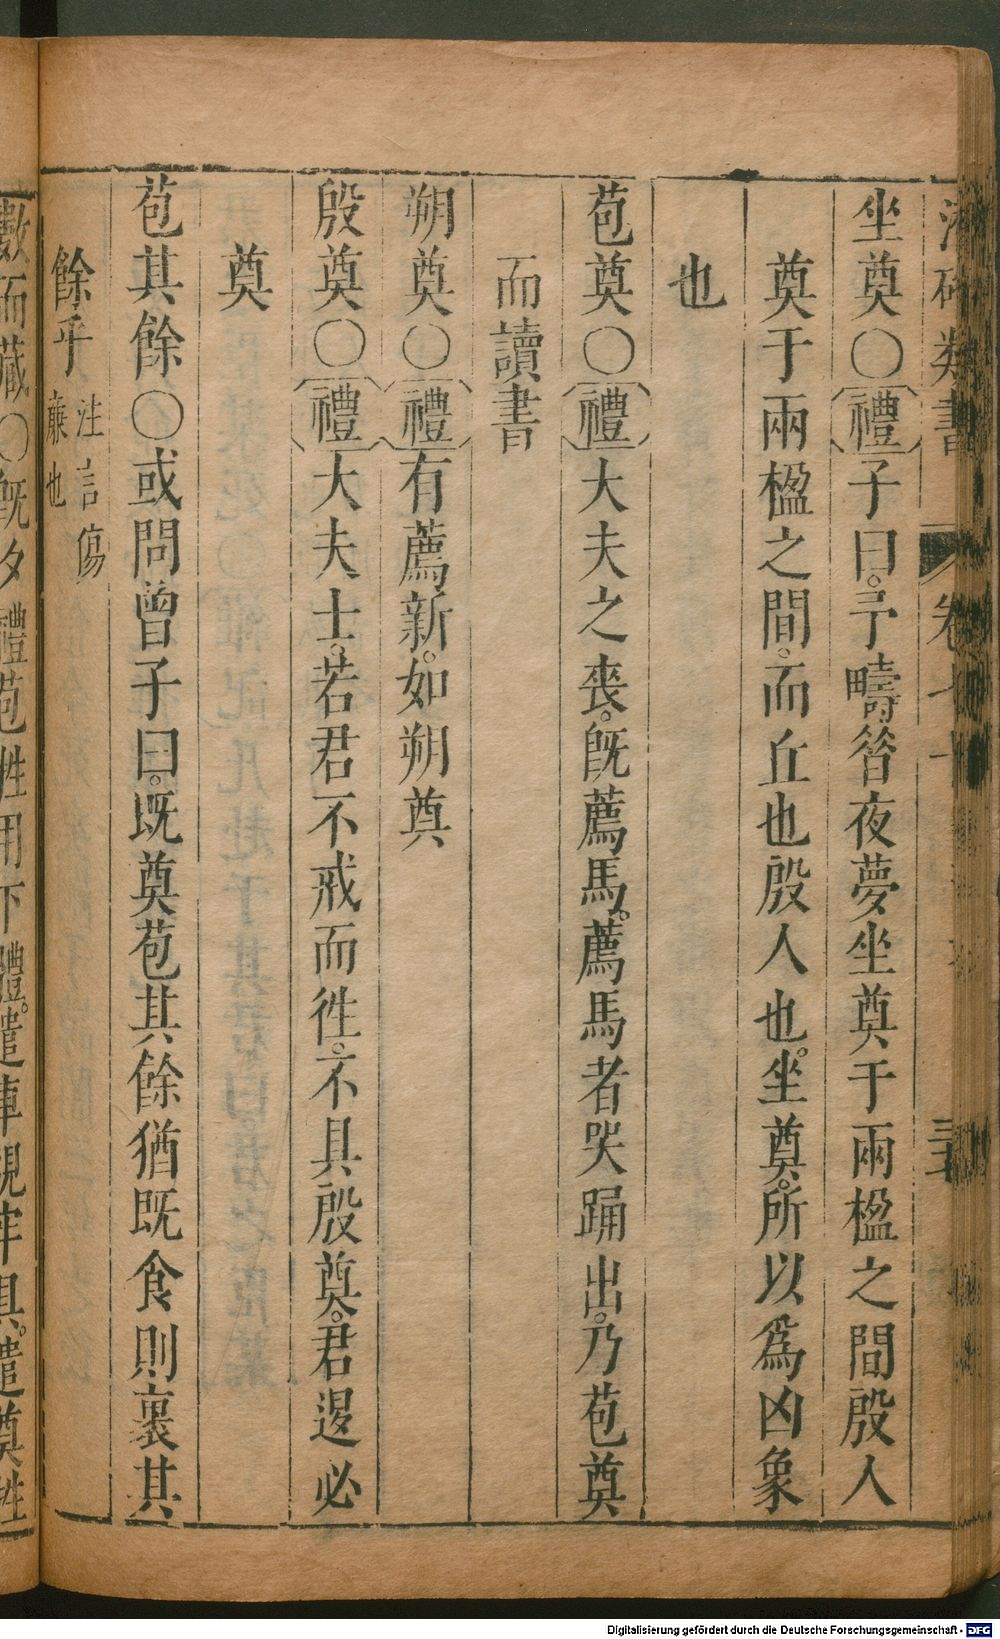 類書 卷七十
坐奠〇禮子曰。予疇昝夜夢坐奠于兩楹之間殷人
奠于兩楹之間。而丘也殷人也。坐奠。所以爲凶象
也
苞奠〇禮大夫之喪。旣薦馬。薦馬者哭踊出。乃苞奠
而讀書
朔奠〇禮有薦新。如朔奠
殷奠〇禮大夫士。若君不戒而徃。不具殷奠。君退必
奠
苞其餘〇或問曾子曰。既奠苞其餘猶既食則裹其
餘乎 注言傷
亷也
數而藏〇旣夕禮苞牲用下體。遣車視牢具。遣奠牲
Digitalisierung gefördert durch die Deutsche Forschungsgemeinschaft - DFG